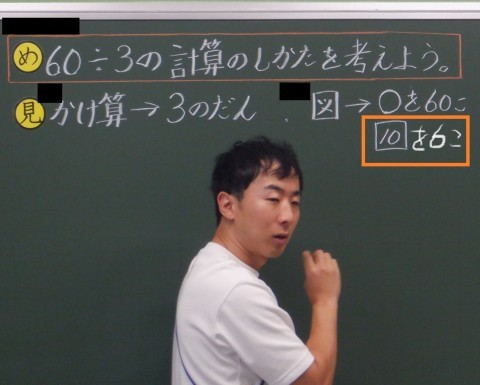 め 60÷3の計算のしかたを考えよう。
見 かけ算→3のだん 図→○を60こ
10を6こ